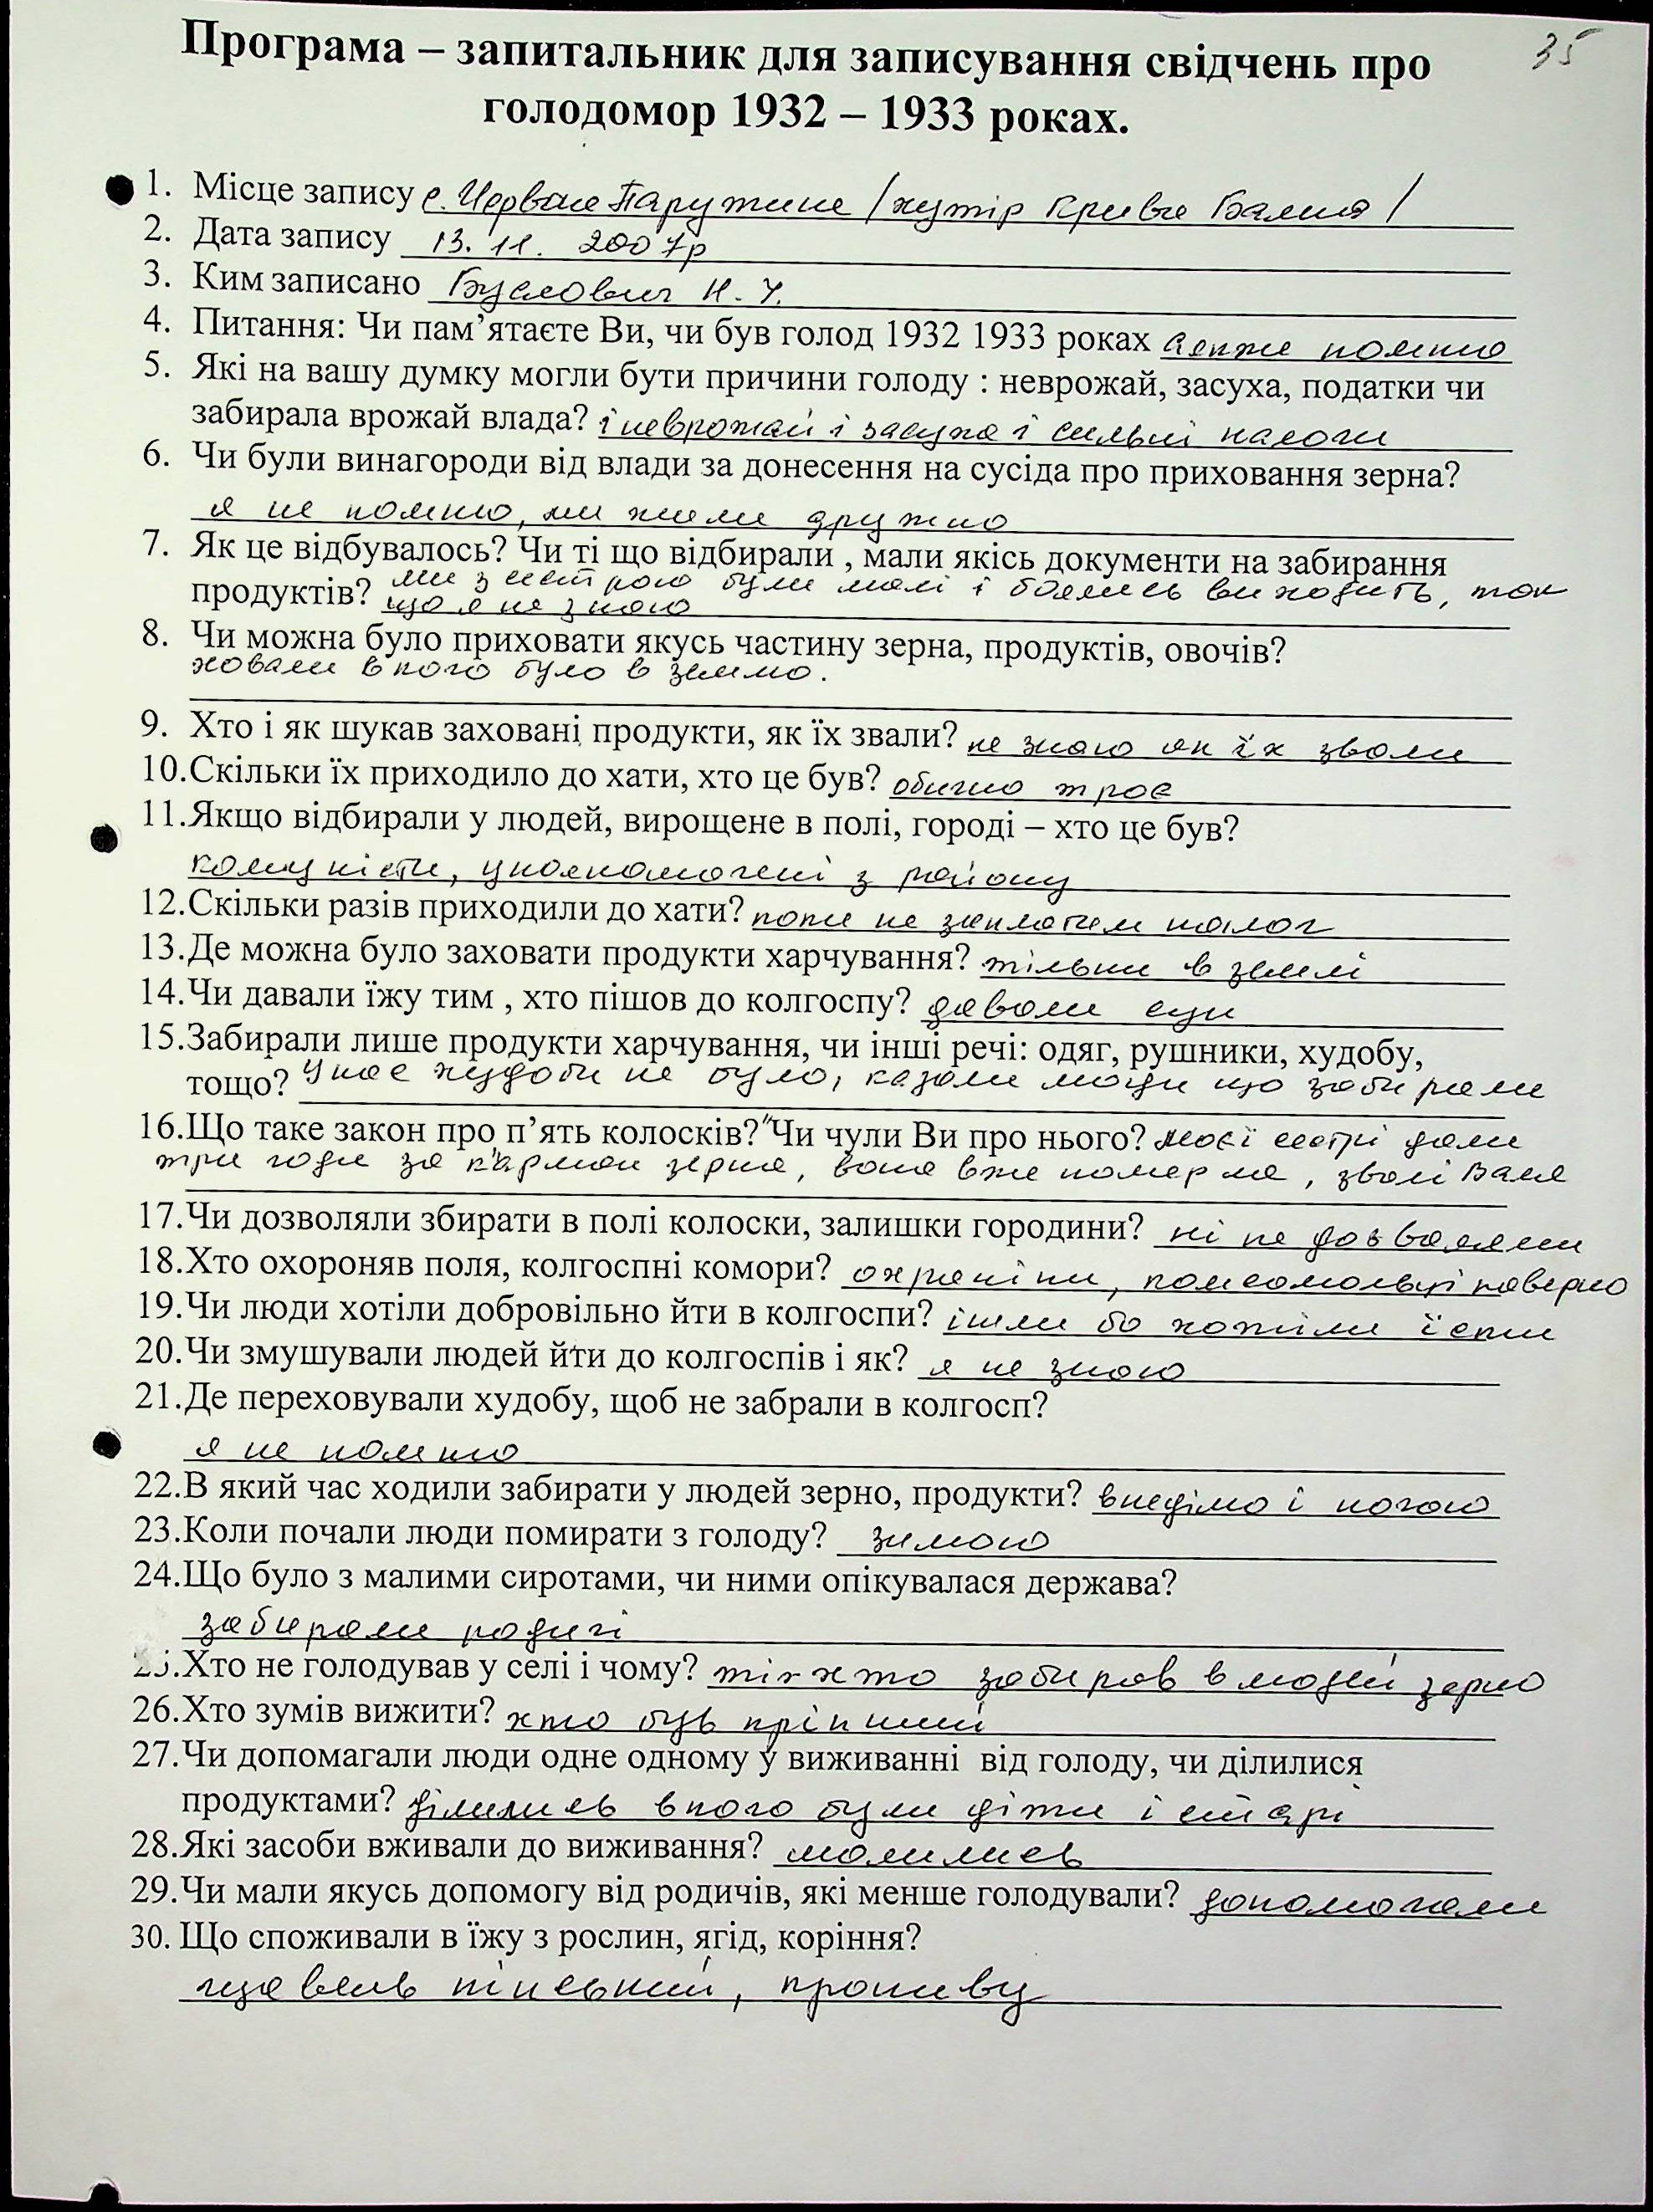 35
Програма – запитальник для записування свідчень про
голодомор 1932 – 1933 роках.
1. Місце запису с. Червоне Паружине /хутір Крива Балка/
2. Дата запису 13. 11. 2007р
3. Ким записано Буслович Н. У.
4. Питання: Чи пам’ятаєте Ви, чи був голод 1932 1933 роках помню
5. Які на вашу думку могли бути причини голоду : неврожай, засуха, податки чи
забирала врожай влада? і неврожай і засуха і сильні налоги
6. Чи були винагороди від влади за донесення на сусіда про приховання зерна?
я не помню, ми жили дружно
7. Як це відбувалось? Чи ті що відбирали , мали якісь документи на забирання
ми з сестрою були малі і боялись виходить, так
продуктів? що я не знаю
8. Чи можна було приховати якусь частину зерна, продуктів, овочів?
ховали в кого було в землю.
9. Хто і як шукав заховані продукти, як їх звали? не знаю як їх звали
10.Скільки їх приходило до хати, хто це був? обично троє
11.Якщо відбирали у людей, вирощене в полі, городі – хто це був?
комуністи, уполномочені з району
12.Скільки разів приходили до хати? поки не заплатим налог
13.Де можна було заховати продукти харчування? тільки в землі
14.Чи давали їжу тим , хто пішов до колгоспу? давали суп
15.Забирали лише продукти харчування, чи інші речі: одяг, рушники, худобу,
тощо? У нас худоби не було, казали люди що забирали
16.Що таке закон про п’ять колосків?"Чи чули Ви про нього? моєї сестрі дали
три годи за карман зерна, вона вже померла, звалі Валя
17.Чи дозволяли збирати в полі колоски, залишки городини? ні не дозволяли
18.Хто охороняв поля, колгоспні комори? охраніки, комсомольці наверно
19.Чи люди хотіли добровільно йти в колгоспи? ішли бо хотіли їсти
20.Чи змушували людей йти до колгоспів і як? я не знаю
21.Де переховували худобу, щоб не забрали в колгосп?
я не помню
22.В який час ходили забирати у людей зерно, продукти? вдень і ночою
23.Коли почали люди помирати з голоду? зимою
24.Що було з малими сиротами, чи ними опікувалася держава?
забирали родичі
25.Хто не голодував у селі і чому? ті хто забирав в людей зерно
26.Хто зумів вижити? хто був кріпший
27.Чи допомагали люди одне одному у виживанні від голоду, чи ділилися
продуктами? ділились в кого були діти і старі
28.Які засоби вживали до виживання? молились
29.Чи мали якусь допомогу від родичів, які менше голодували? допомагали
30. Що споживали в їжу з рослин, ягід, коріння?
щавель кінський, кропиву